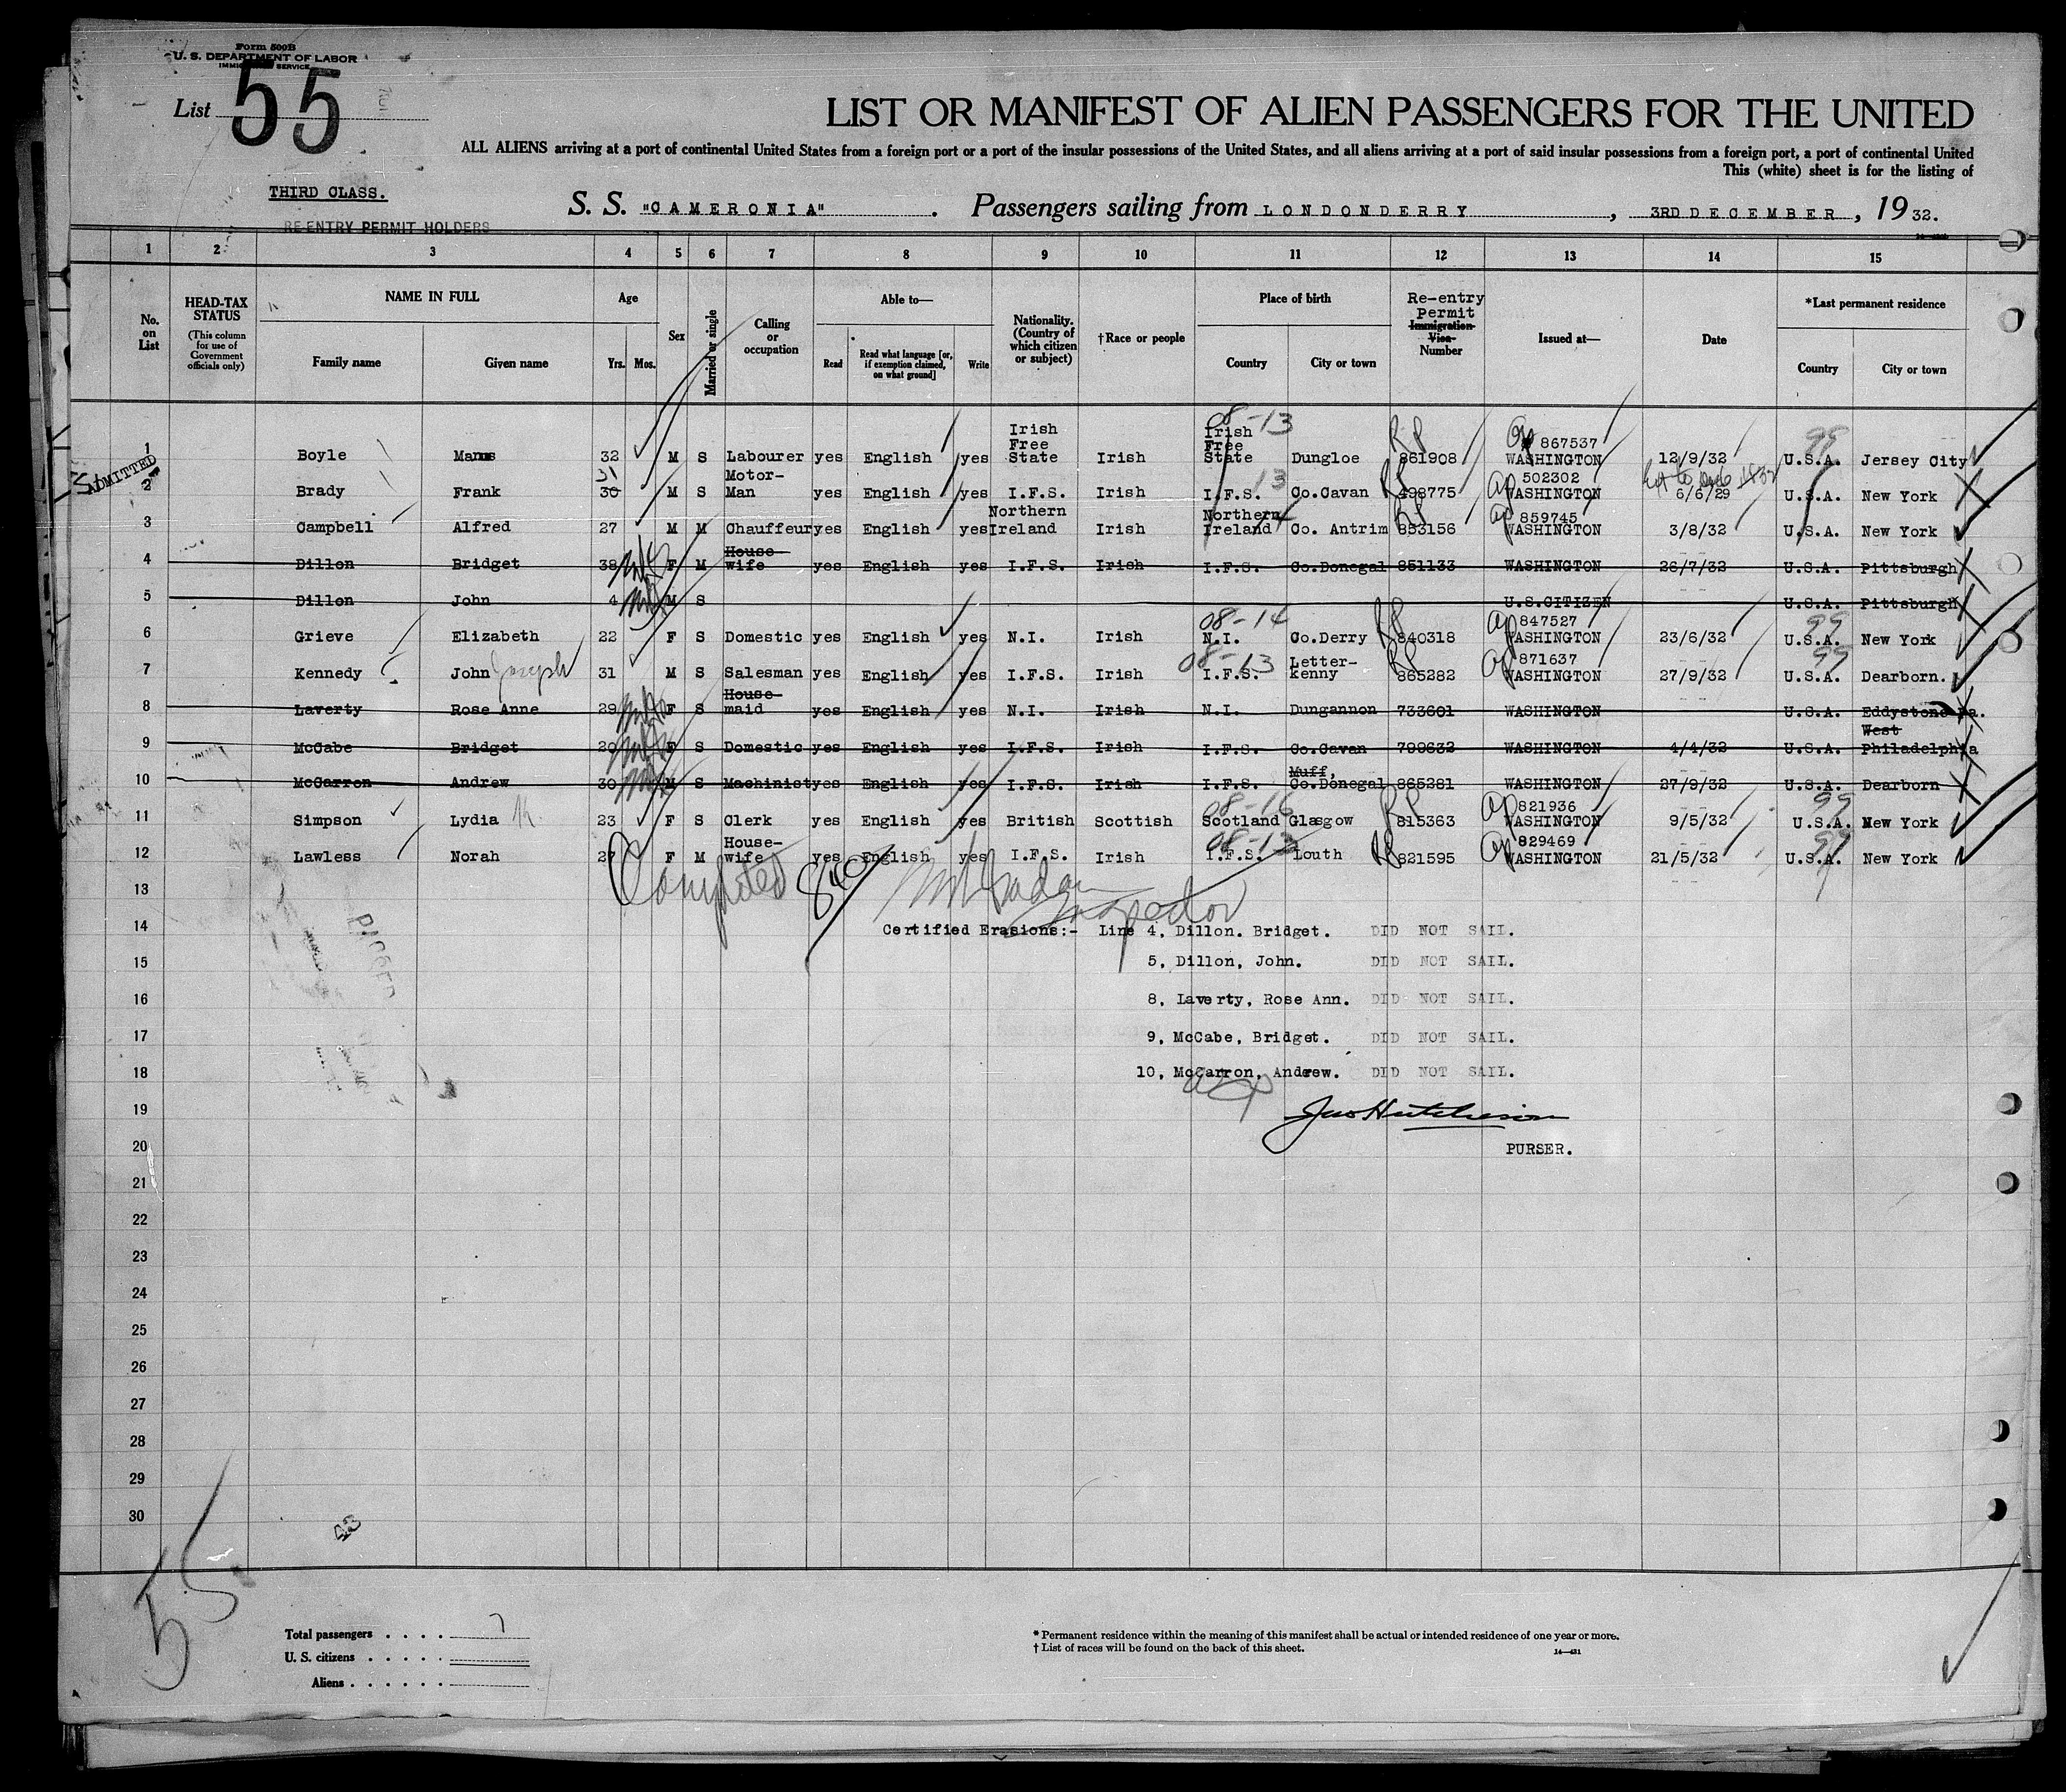 Form 500B
U. S. DEPARTMENT OF LABOR
IMMIGRATION SERVICE
List 55
LIST OR MANIFEST OF ALIEN PASSENGERS FOR THE UNITED
ALL ALIENS arriving at a port of continental United States from a foreign port or a port of the insular possessions of the United States, and all aliens arriving at a port of said insular possessions from a foreign port, a port of continental United
This (white) sheet is for the listing of
THIRD CLASS.
RE-ENTRY PERMIT HOLDERS
S. S. "CAMERONIA". Passengers sailing from LONDONDERRY, 3RD DECEMBER, 1932.
1 2 3 4 5 6 7 8 9 10 11 12 13 14 15
No. on List
HEAD-TAX STATUS
(This column for use of Government officials only)
NAME IN FULL
Family name Given name
Age
Yrs. Mos.
Sex
Married or single
Calling or occupation
Able to—
Read
Read what language [or, if exemption claimed, on what ground]
Write
Nationality. (Country of which citizen or subject)
†Race or people
Place of birth
Country City or town
Re-entry Permit
Immigration Visa Number
Issued at—
Date
*Last permanent residence
Country City or town
ADMITTED
1 Boyle Manus 32 M S Labourer yes English yes Irish Free State Irish 08-13 Irish Free State Dungloe RP 861908 867537 WASHINGTON 12/9/32 99 U.S.A. Jersey City
2 Brady Frank 30 31 M S Motor-Man yes English yes I.F.S. Irish I.F.S. 13 Co.Cavan RP 498775 502302 WASHINGTON 6/6/29 U.S.A. New York
3 Campbell Alfred 27 M M Chauffeur yes English yes Northern Ireland Irish Northern Ireland Co. Antrim RP 853156 859745 WASHINGTON 3/8/32 U.S.A. New York
4 Dillon Bridget 38 F M House-wife yes English yes I.F.S. Irish I.F.S. Co.Donegal 851133 WASHINGTON 26/7/32 U.S.A. Pittsburgh
5 Dillon John 4 M S U.S.CITIZEN U.S.A. Pittsburgh
6 Grieve Elizabeth 22 F S Domestic yes English yes N.I. Irish 08-14 N.I. Co.Derry RP 840318 847527 WASHINGTON 23/6/32 99 U.S.A. New York
7 Kennedy John Joseph 31 M S Salesman yes English yes I.F.S. Irish 08-13 I.F.S. Letter-kenny RP 865282 871637 WASHINGTON 27/9/32 99 U.S.A. Dearborn.
8 Laverty Rose Anne 29 F S House-maid yes English yes N.I. Irish N.I. Dungannon 733601 WASHINGTON U.S.A. Eddystone Pa.
9 McCabe Bridget 29 F S Domestic yes English yes I.F.S. Irish I.F.S. Co.Cavan 799632 WASHINGTON 4/4/32 U.S.A. West Philadelphia
10 McCarron Andrew 30 M S Machinist yes English yes I.F.S. Irish I.F.S. Muff, Co.Donegal 865281 WASHINGTON 27/9/32 U.S.A. Dearborn
11 Simpson Lydia 23 F S Clerk yes English yes British Scottish 08-16 Scotland Glasgow RP 815363 821936 WASHINGTON 9/5/32 99 U.S.A. New York
12 Lawless Norah 27 F M House-wife yes English yes I.F.S. Irish 08-13 I.F.S. Louth RP 821595 829469 WASHINGTON 21/5/32 99 U.S.A. New York
13 Completed Inspector
14 Certified Erasions:- Line 4, Dillon. Bridget. DID NOT SAIL.
15 5, Dillon, John. DID NOT SAIL.
16 8, Laverty, Rose Ann. DID NOT SAIL.
17 9, McCabe, Bridget. DID NOT SAIL.
18 10, McCarron, Andrew. DID NOT SAIL.
19 Jno Hutchison
20 PURSER.
21
22
23
24
25
26
27
28
29
30
43
55
Total passengers . . . . 7
U. S. citizens . . . . .
Aliens . . . . . .
* Permanent residence within the meaning of this manifest shall be actual or intended residence of one year or more.
† List of races will be found on the back of this sheet.
14—431